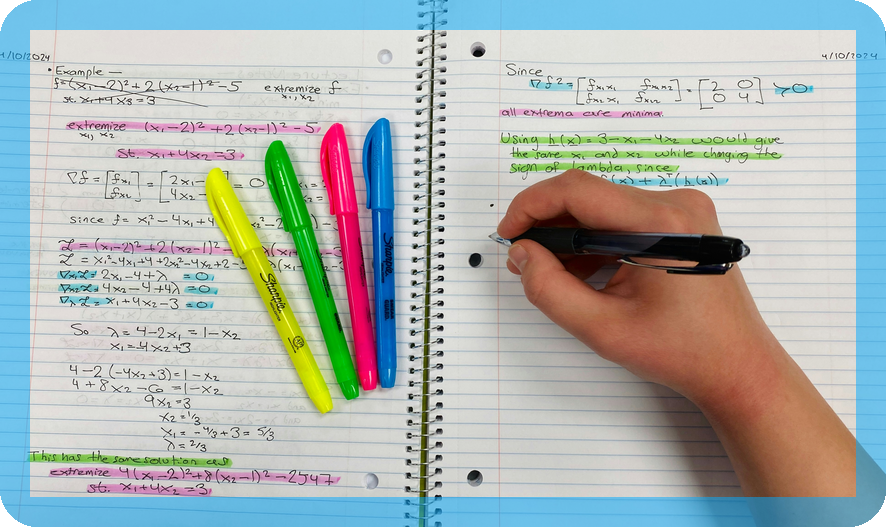 4/10/2024
• Example —
f=(x₁-2)²+2(x₂-1)²-5 extremize f
x₁,x₂
st. x₁+4x₃=3
extremize (x₁-2)²+2(x₂-1)²-5
x₁,x₂
st. x₁+4x₂=3
∇f = [fx₁ fx₂] = [2x₁- 4x₂] = 0
since f= x₁²-4x₁+4
L = (x₁-2)²+2(x₂-1)²
L = x₁²-4x₁+4+2x₂²-4x₂+2-
∇x₁L= 2x₁-4+λ =0
∇x₂L= 4x₂-4+4λ =0
∇λL= x₁+4x₂-3 =0
So λ=4-2x₁=1-x₂
x₁=-4x₂+3
4-2(-4x₂+3)=1-x₂
4+8x₂-6=1-x₂
9x₂=3
x₂=1/3
x₁=-4/3+3=5/3
λ=2/3
This has the same solution as
extremize 4(x₁-2)²+8(x₂-1)²-2547
st. x₁+4x₂=3
4/10/2024
Since
∇f² = [fx₁x₁ fx₁x₂ fx₂x₁ fx₂x₂] = [2 0 0 4] >0
all extrema are minima.
Using h(x)=3-x₁-4x₂ would give
the same x₁ and x₂ while changing the
sign of lambda, since
f(x)+λᵀ(h(x))
Sharpie
Sharpie